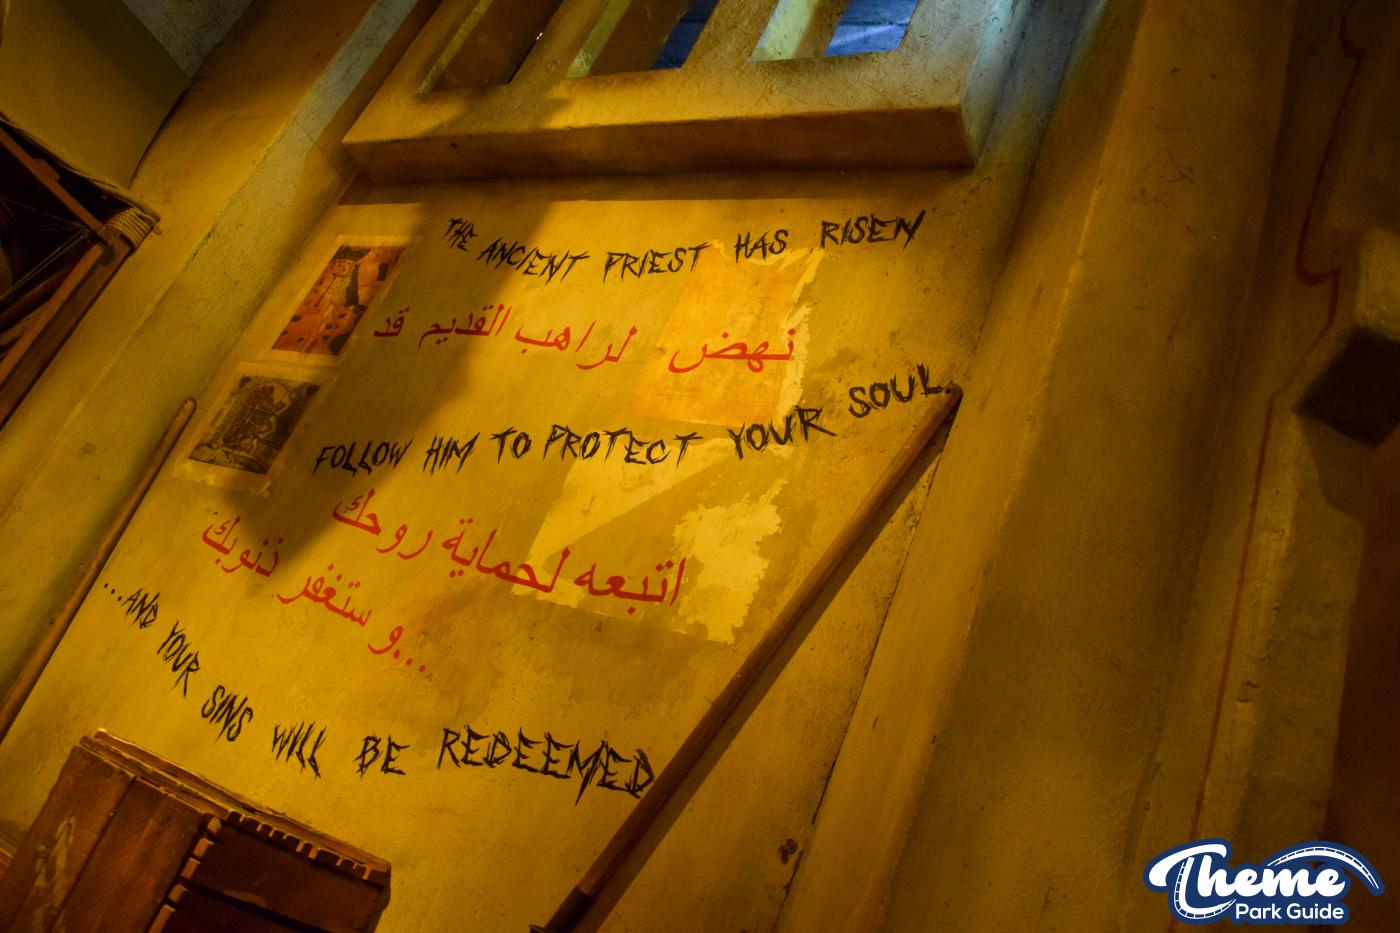 THE ANCIENT PRIEST HAS RISEN
نهض لراهب القديم قد
FOLLOW HIM TO PROTECT YOUR SOUL.
اتبعه لحماية روحك
...و ستغفر ذنوبك
...AND YOUR SINS WILL BE REDEEMED
Theme
Park Guide